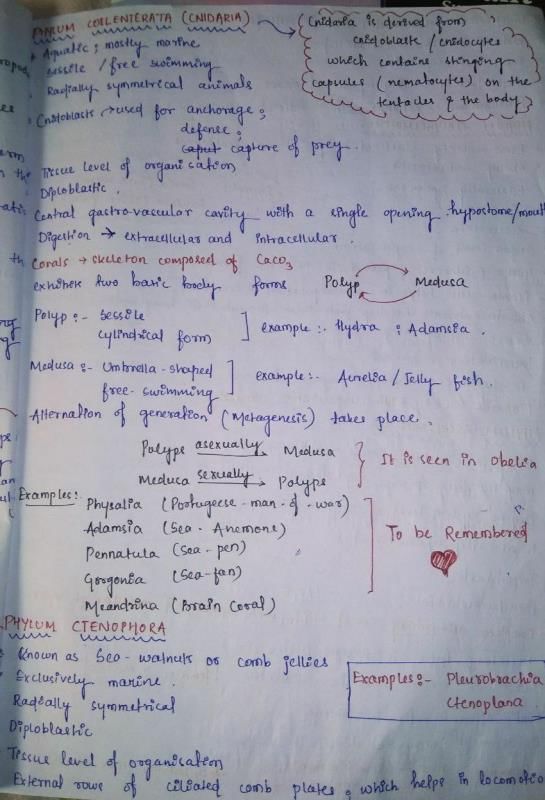 PHYLUM COELENTERATA (CNIDARIA)
Cnidaria is derived from
cnidoblasts / cnidocytes
which contains stinging
capsules (nematocytes) on the
tentacles & the body
Aquatic ; mostly marine
sessile / free swimming
Radially symmetrical animals
Cnidoblasts → used for anchorage ;
defense ;
capture of prey.
Tissue level of organisation
Diploblastic .
Central gastro-vascular cavity with a single opening . hypostome/mout
Digestion → extracellular and intracellular .
Corals → skeleton composed of CaCO3
exhibits two basic body forms Polyp Medusa
Polyp :- Sessile
cylindrical form
example :- Hydra ; Adamsia .
Medusa :- Umbrella - shaped
free- swimming
example :- Aurelia / Jelly fish .
Alternation of generation (Metagenesis) takes place .
Polyps asexually→ Medusa
Medusa sexually→ Polyps
It is seen in Obelia
Examples :-
Physalia (Portugeese - man - of - war)
Adamsia (Sea - Anemone)
Pennatula (Sea - pen)
Gorgonia (Sea-fan)
Meandrina (Brain Coral)
To be Remembered
PHYLUM CTENOPHORA
Known as Sea - walnuts or comb jellies
Exclusively marine .
Radially symmetrical
Diploblastic
Examples :- Pleurobrachia
Ctenoplana
Tissue level of organisation
External rows of ciliated comb plates , which helps in locomotio